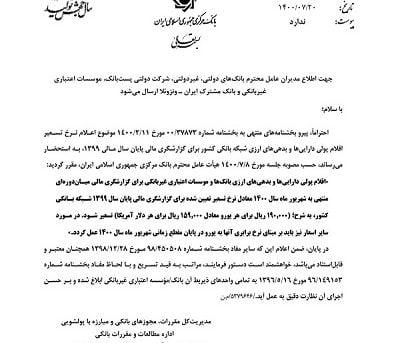 تاریخ: ۱۴۰۰/۰۷/۲۰
پیوست: ندارد
بانک مرکزی جمهوری اسلامی ایران
بسمه‌تعالی
جهت اطلاع مدیران عامل محترم بانک‌های دولتی، غیردولتی، شرکت دولتی پست‌بانک، موسسات اعتباری
غیربانکی و بانک مشترک ایران – ونزوئلا ارسال می‌شود
با سلام؛
احتراماً، پیرو بخشنامه‌های منتهی به بخشنامه شماره ۰۰/۳۷۸۷۳ مورخ ۱۴۰۰/۲/۱۱ موضوع اعلام نرخ تسعیر
اقلام پولی دارایی‌ها و بدهی‌های ارزی شبکه بانکی کشور برای گزارشگری مالی پایان سال ۱۳۹۹، به استحضار
می‌رساند، حسب مصوبه جلسه مورخ ۱۴۰۰/۷/۸ هیأت عامل محترم بانک مرکزی جمهوری اسلامی ایران، مقرر گردید:
«اقلام پولی دارایی‌ها و بدهی‌های ارزی بانک‌ها و موسسات اعتباری غیربانکی برای گزارشگری مالی میان‌دوره‌ای
منتهی به شهریور ماه سال ۱۴۰۰ معادل نرخ تسعیر تعیین شده برای گزارشگری مالی پایان سال ۱۳۹۹ شبکه بانکی
کشور، به شرح؛ (۱۹۰,۰۰۰ ریال برای هر یورو معادل ۱۵۹,۰۰۰ ریال برای هر دلار آمریکا) تسعیر شود. در مورد
سایر اسعار نیز باید بر مبنای نرخ برابری آنها به یورو در پایان مقطع زمانی شهریور ماه سال ۱۴۰۰ عمل گردد.»
در پایان، ضمن اعلام این که سایر مفاد بخشنامه شماره ۹۸/۴۵۰۵۰۸ مورخ ۱۳۹۸/۱۲/۲۸ همچنان معتبر و
قابل‌استناد می‌باشد، خواهشمند است دستور فرمایند، مراتب به قید تسریع و با لحاظ مفاد بخشنامه شماره
۹۶/۱۴۹۱۵۳ مورخ ۱۳۹۶/۵/۱۶ به تمامی واحدهای ذیربط آن بانک/مؤسسه اعتباری غیربانکی ابلاغ شده و بر حسن
اجرای آن نظارت دقیق به عمل آید./۵۳۷۹۶۴۶
مدیریت‌کل مقررات، مجوزهای بانکی و مبارزه با پولشویی
اداره مطالعات و مقررات بانکی